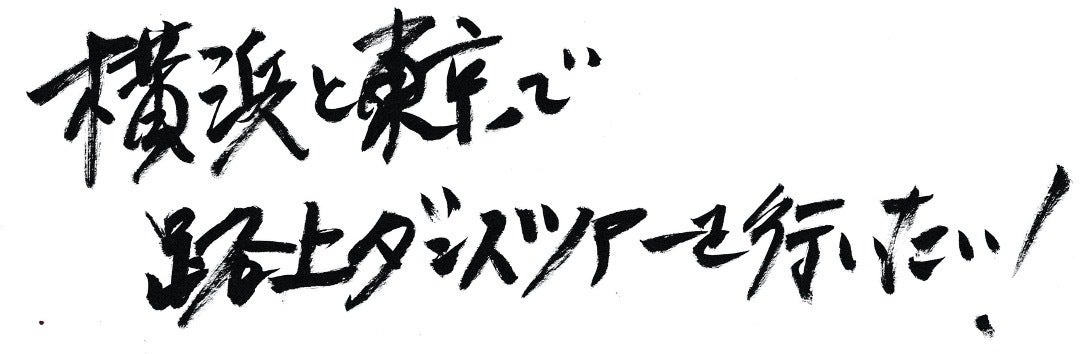 横浜と東京で
路上ダンスツアーを行いたい!